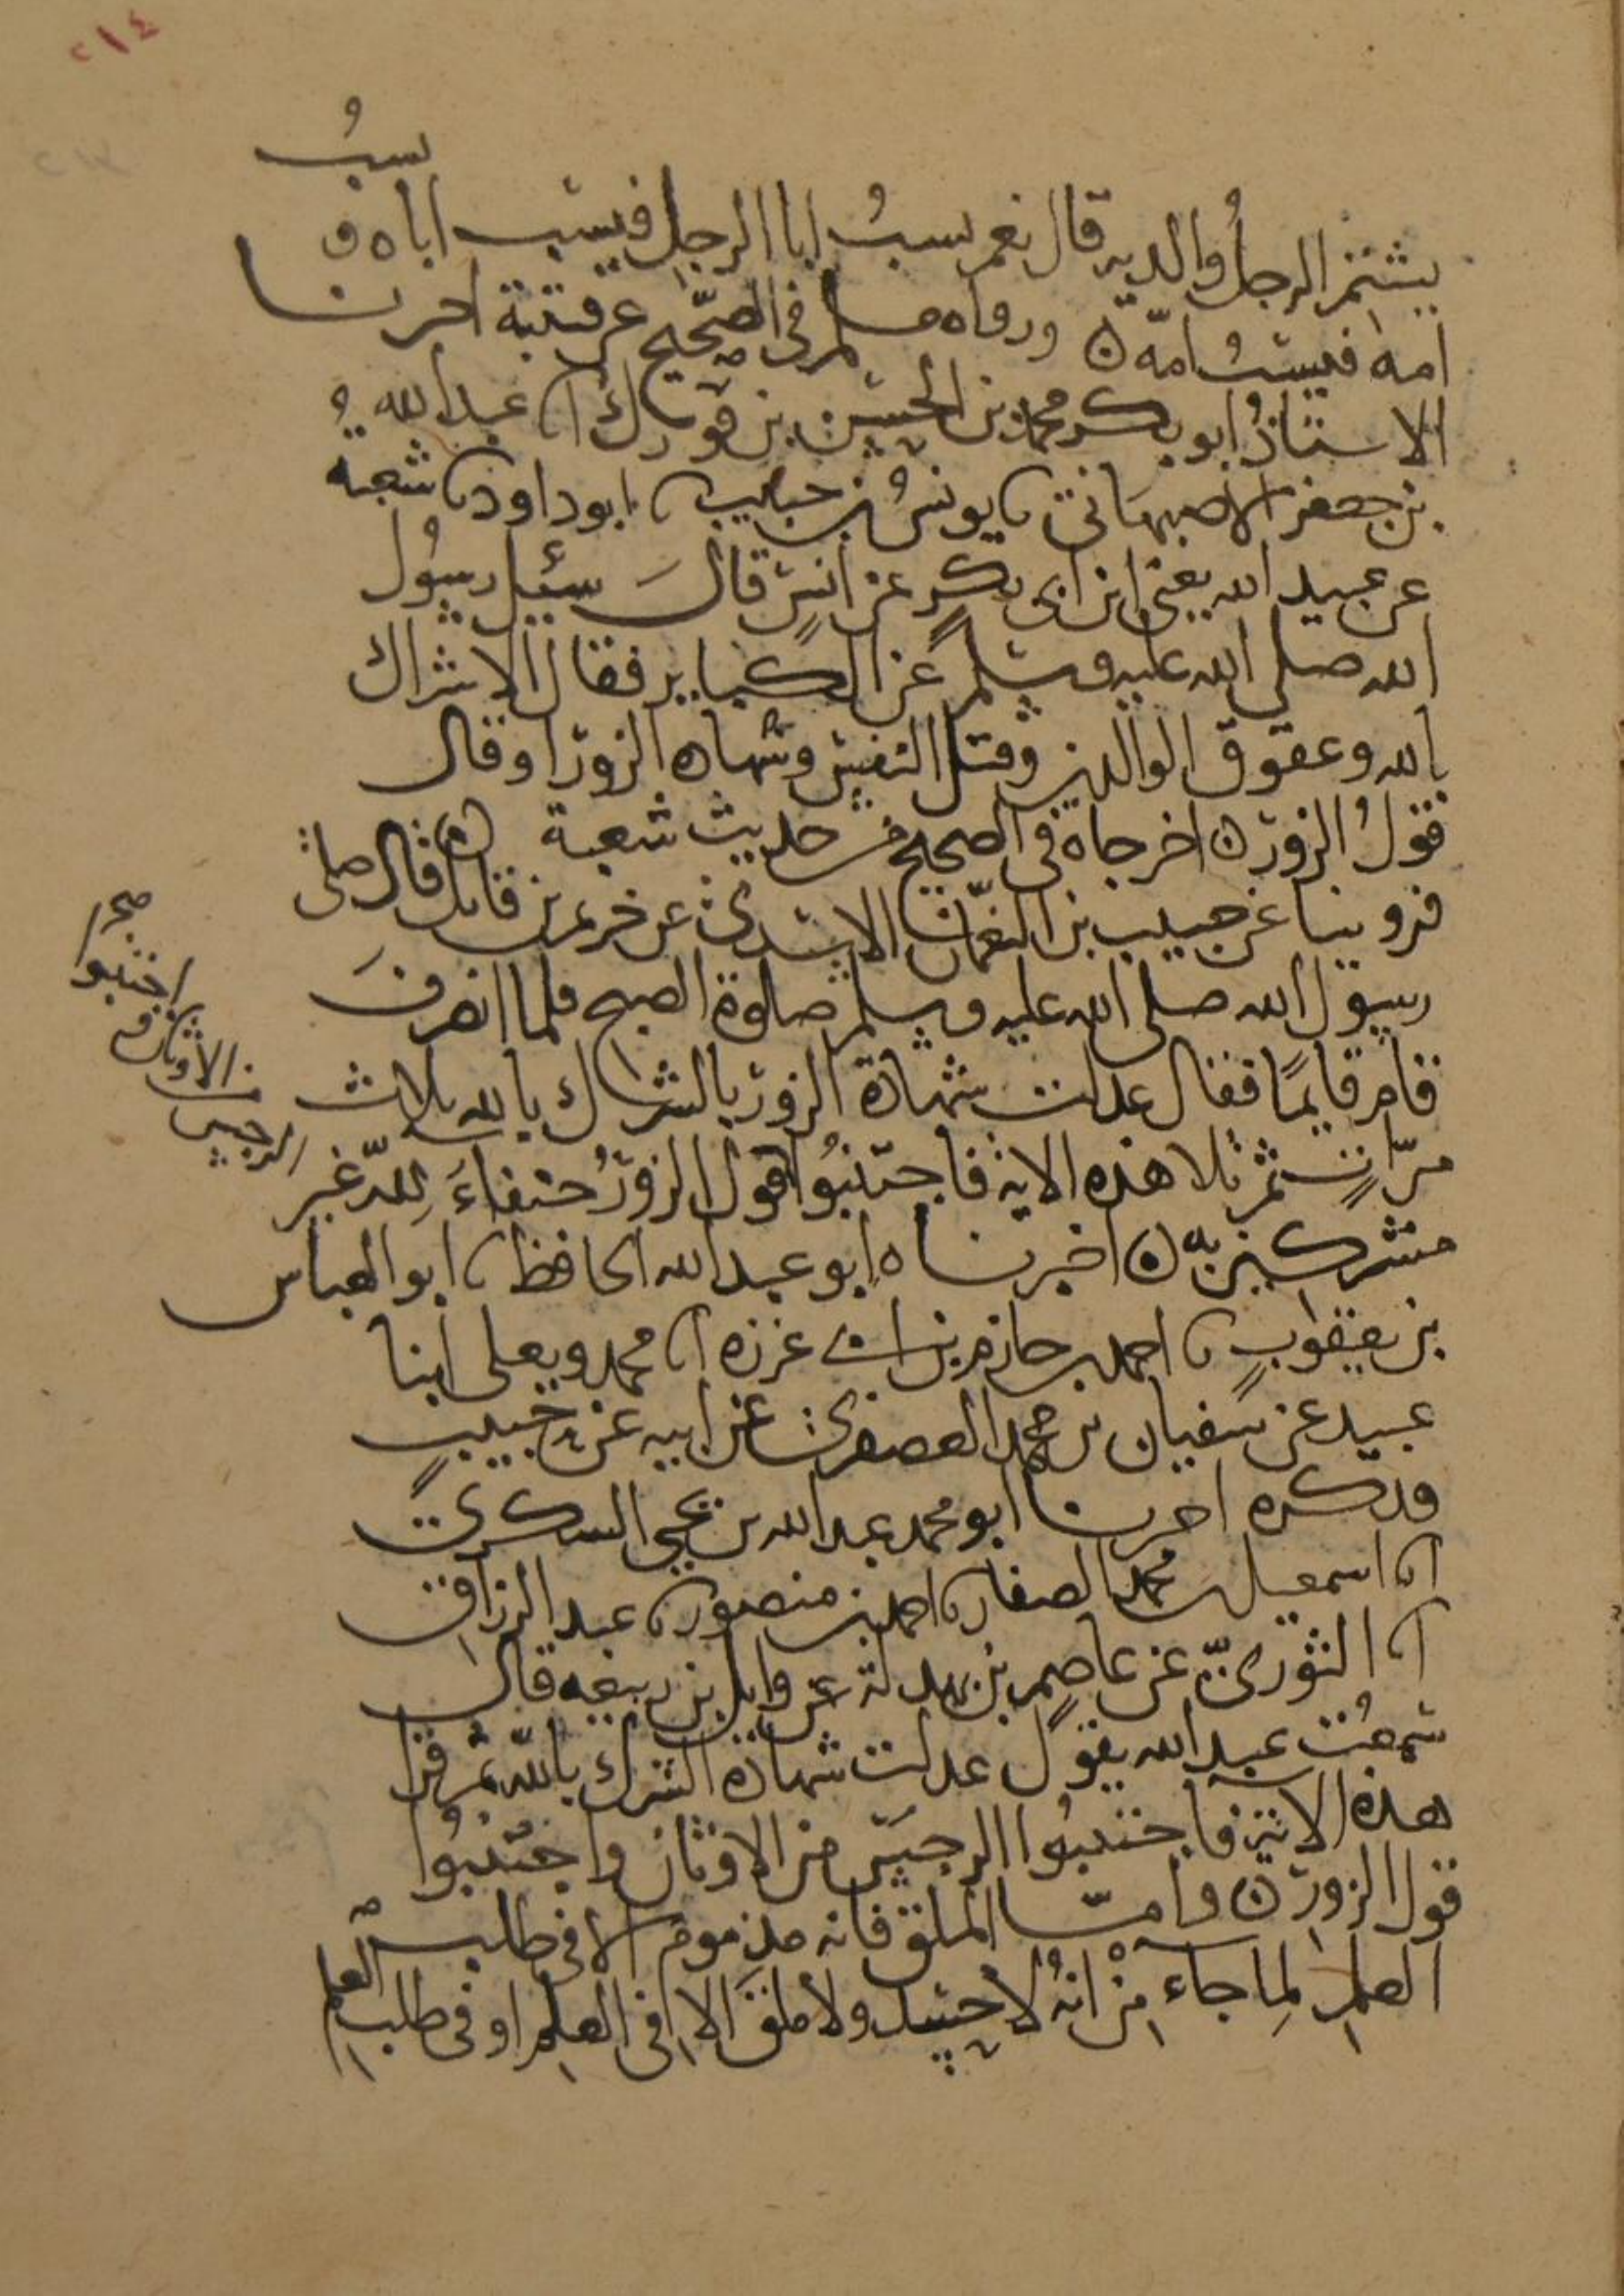 ٢١٤
يسبُّ
يشتم الرجلُ والديه قال نعم يسبُّ ابا الرجل فيسب اباه و
امه فيسبُّ امّه ن ورواه مسلم في الصّحيح عن قتيبة اخبرنا
الاستاذُ ابو بكر محمد بن الحسين بن فورك انا عبد الله
بن جعفر الاصبهاني نا يونسُ بن حبيب نا ابو داود نا شعبة
عن عبيد الله يعني ابن ابي بكرٍ عن انسٍ قالَ سئيل رسُول
الله صلى الله عليه وسلم عن الكباير فقال الاشراك
بالله وعقوق الوالدين وقتل النفس وشهاده الزور او قال
قولُ الزور ن اخرجاه في الصحيح من حديث شعبة ن
فروينا عن حبيب بن النعمان الاسدي عن خريم بن فاتك قال صلى
رسول الله صلى الله عليه وسلم صلوة الصبح فلما انصرفَ
قام قايمًا فقال عدلت شهادة الزور بالشراك بالله ثلاث
مرّاتٍ ثم تلا هذه الاية فاجتنبُوا قول الزورُ حنفاءَ لِلّه غير
صح
الرجس
من
الاوثان و
اجتنبوا
مشركين به ن اخبرناه ابو عبد الله الحافظ نا ابو العباس
بن يعقوبٍ نا احمد بن حازم بن ابي غرزه انا محمد ويعلى ابنا
عبيد عن سفيان بن محمد العصفري عن ابيه عن حبيبٍ
فذكره اخبرنا ابو محمد عبد الله بن يحيى السكري
انا اسمعيل بن محمد الصفار نا احمد بن منصور نا عبد الرزاق
انا الثوريّ عن عاصمٍ بن بهدلة عن وايل بن ربيعه قال
سمعتُ عبد الله يقول عدلت شهادة الشرك باللّه ثم قرا
هذه الاية فاجتنبُوا الرجسَ من الاوثان واجتنبُوا
قول الزور ن وامّا الملق فانه مذموم الا في طلب
العلم لِما جاء من انهُ لا حسد ولا ملقَ الا في العلم او في طلب العلم